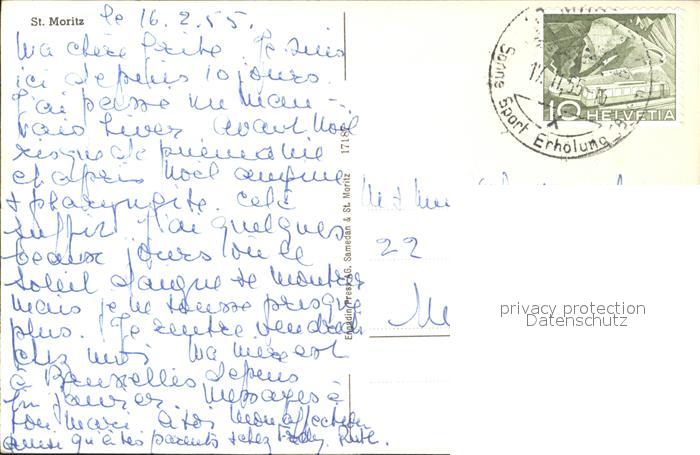 St. Moritz le 16.2.55.
Ma chère Je suis
ici depuis 10 jours.
J'ai passé un mau-
vais hiver avant Noël
risque de pneumonie
et après Noël angine
+ pharyngite. cela
suffit j'ai quelques
beaux jours où le
soleil daigne se montrer
mais je ne tousse presque
plus. Je rentre vendredi
chez moi Ma mère est
à Bruxelles depuis
fin janvier messages à
ton mari à toi mon affection
ainsi qu'à tes parents + chez Ruth.
Engadin Press AG. Samedan & St. Moritz 17187
HELVETIA
10
Sonne Sport Erholung
22
privacy protection
Datenschutz